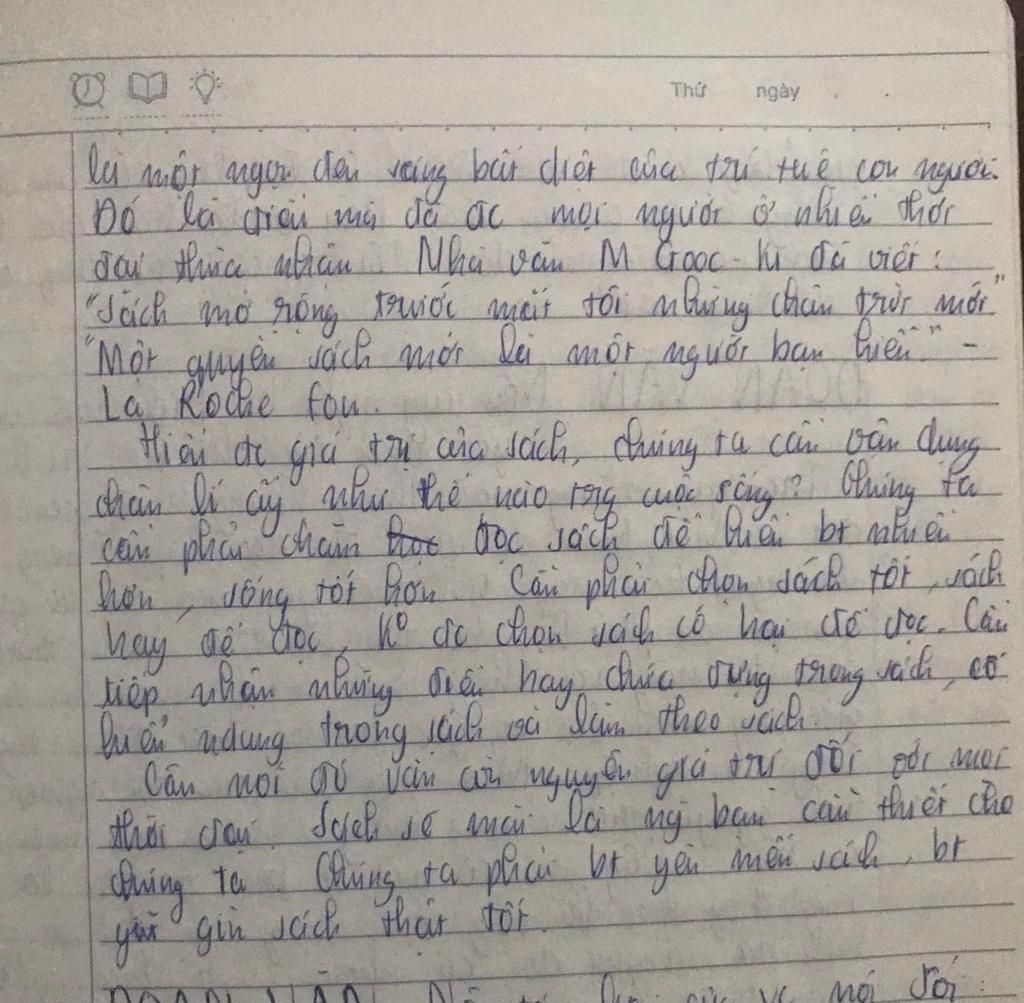 Thứ ngày
là một ngọn đèn sáng bất diệt của trí tuệ con người.
Đó là điều mà đã đc mọi người ở nhiều thời
đại thừa nhận. Nhà văn M Gooc-Ki đã viết:
"Sách mở rộng trước mắt tôi những chân trời mới"
"Một quyển sách mới là một người bạn hiền" -
La Roche fou.
Hiểu đc giá trị của sách, chúng ta cần vận dụng
chân lí ấy như thế nào trg cuộc sống? Chúng ta
cần phải chăm đọc sách để hiểu bt nhiều
hơn, sống tốt hơn. Cần phải chọn sách tốt, sách
hay để đọc, ko đc chọn sách có hại để đọc. Cần
tiếp nhận những điều hay chứa đựng trong sách, cố
hiểu ndung trong sách và làm theo sách.
Câu nói đó vẫn còn nguyên giá trị đối với mọi
thời đại. Sách sẽ mãi là ng bạn cần thiết cho
chúng ta. Chúng ta phải bt yêu mến sách, bt
giữ gìn sách thật tốt.